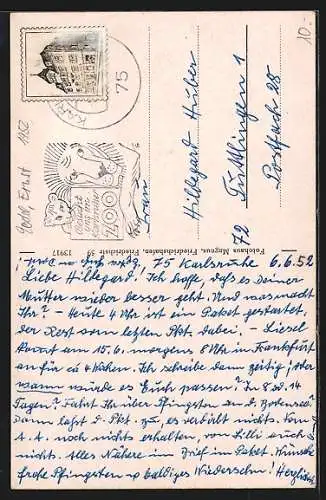 10.-
75
Besucht
den
Karlsruher
ZOO
Boehl, Ernst 1162
Frau
Hildegard Huber
Tuttlingen 1
Postfach 28
72
Fotohaus Magnus, Friedrichshafen, Friedrichstr. 39 13917
75 Karlsruhe 6.6.52
Liebe Hildegard! Ich hoffe, daß es Deiner
Mutter wieder besser geht. Und was macht
Ihr? - Heute 4 Uhr ist ein Paket gestartet,
der Rest vom letzten Pkt. dabei. - Liesel
kommt am 15.6. morgens 8 Uhr in Frankfurt
an für ca 4 Wochen. Ich schreibe dann zeitig, aber
wann würde es Euch passen? In 8 od. 14
Tagen? Fahrt Ihr über Pfingsten an d. Bodensee?
Dann laßt d. Pkt. zu, es verdirbt nichts. Von
A. A. noch nichts erhalten, von Lilli auch
nichts! Alles Nähere im Brief im Paket. Wünsche
frohe Pfingsten u. baldiges Wiedersehn! Herzlichst